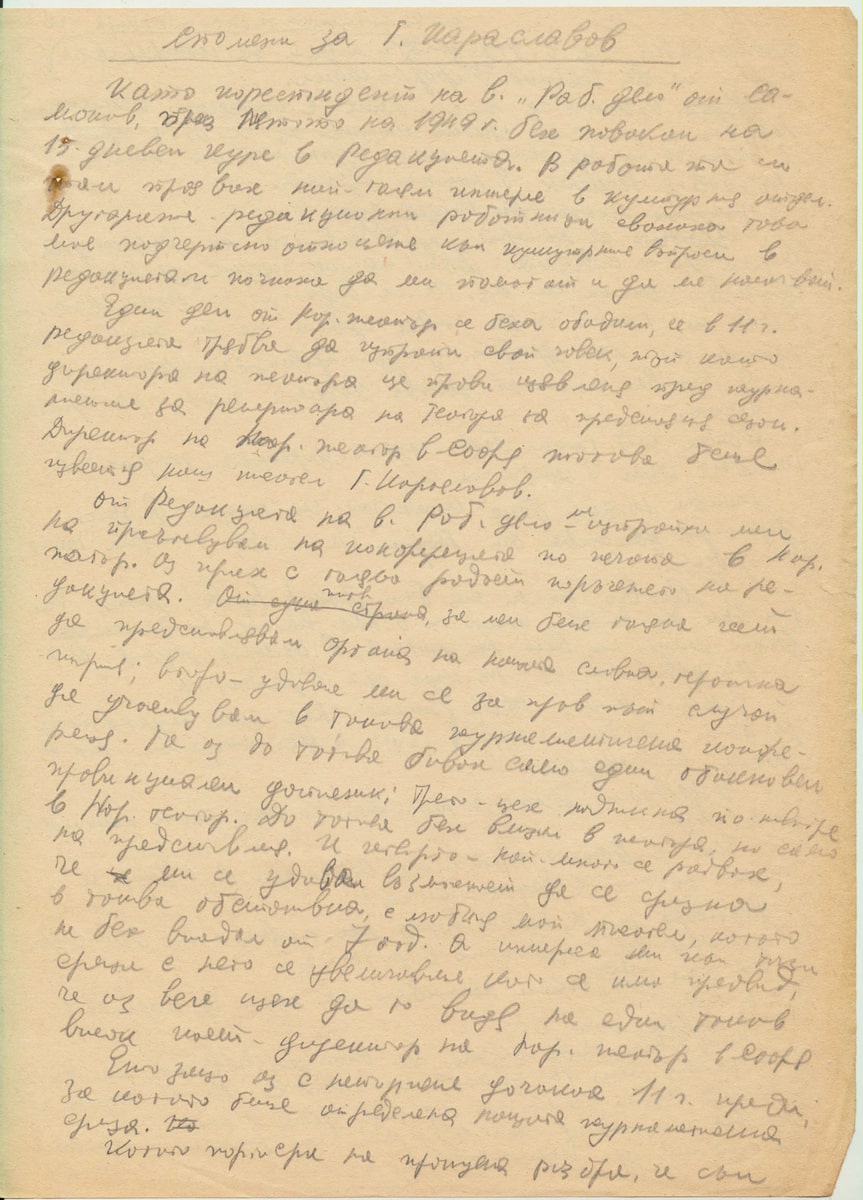 Спомени за Г. Караславов
Като кореспондент на в. „Раб. дело“ от Са-
моков, през лятото на 1949 г. бях повикан на
15-дневен курс в Редакцията. В работата си
там проявих най-голям интерес в културния отдел.
Другарите-редакционни работници схванаха това
мое подчертано отношение към културните въпроси в
редакцията и почнаха да ми помагат и да ме насочват.
Един ден от Нар. театър се бяха обадили, че в 11 г.
редакцията трябва да изпрати свой човек, тъй като
директора на театъра ще прави изявления пред журна-
листите за репертоара на театъра за предстоящия сезон.
Директор на Нар. театър в София тогава беше
известния наш писател Г. Караславов.
От Редакцията на в. Раб. дело ме изпратиха мен
да присъствувам на конференцията по печата в Нар.
театър. Аз приех с голяма радост поръчението на ре-
дакцията. От една страна, за мен беше голяма чест
да представлявам органа на нашата славна, героична
партия; второ - удаваше ми се за пръв път случай
да участвувам в такава журналистическа конфе-
ренция. Та аз до тогава бивах само един обикновен
провинциален дописник; Трето - щях
в Нар. театър. До тогава бях влизал в театъра, но само
на представления. И четвърто - най-много се радвах,
че ми се удава възможност да се срещна
в такава обстановка, с любимия мой писател, когото
не бях виждал от 7 год. А интереса ми към тази
среща с него се увеличаваше като се има предвид,
че аз вече щях да го видя на един такъв
висок пост - директор на Нар. театър в София
Ето защо аз с нетърпение дочаках 11 г. преди,
за когато беше определена нашата журналистическа
среща.
Когато портиера на пропуска разбра, че съм